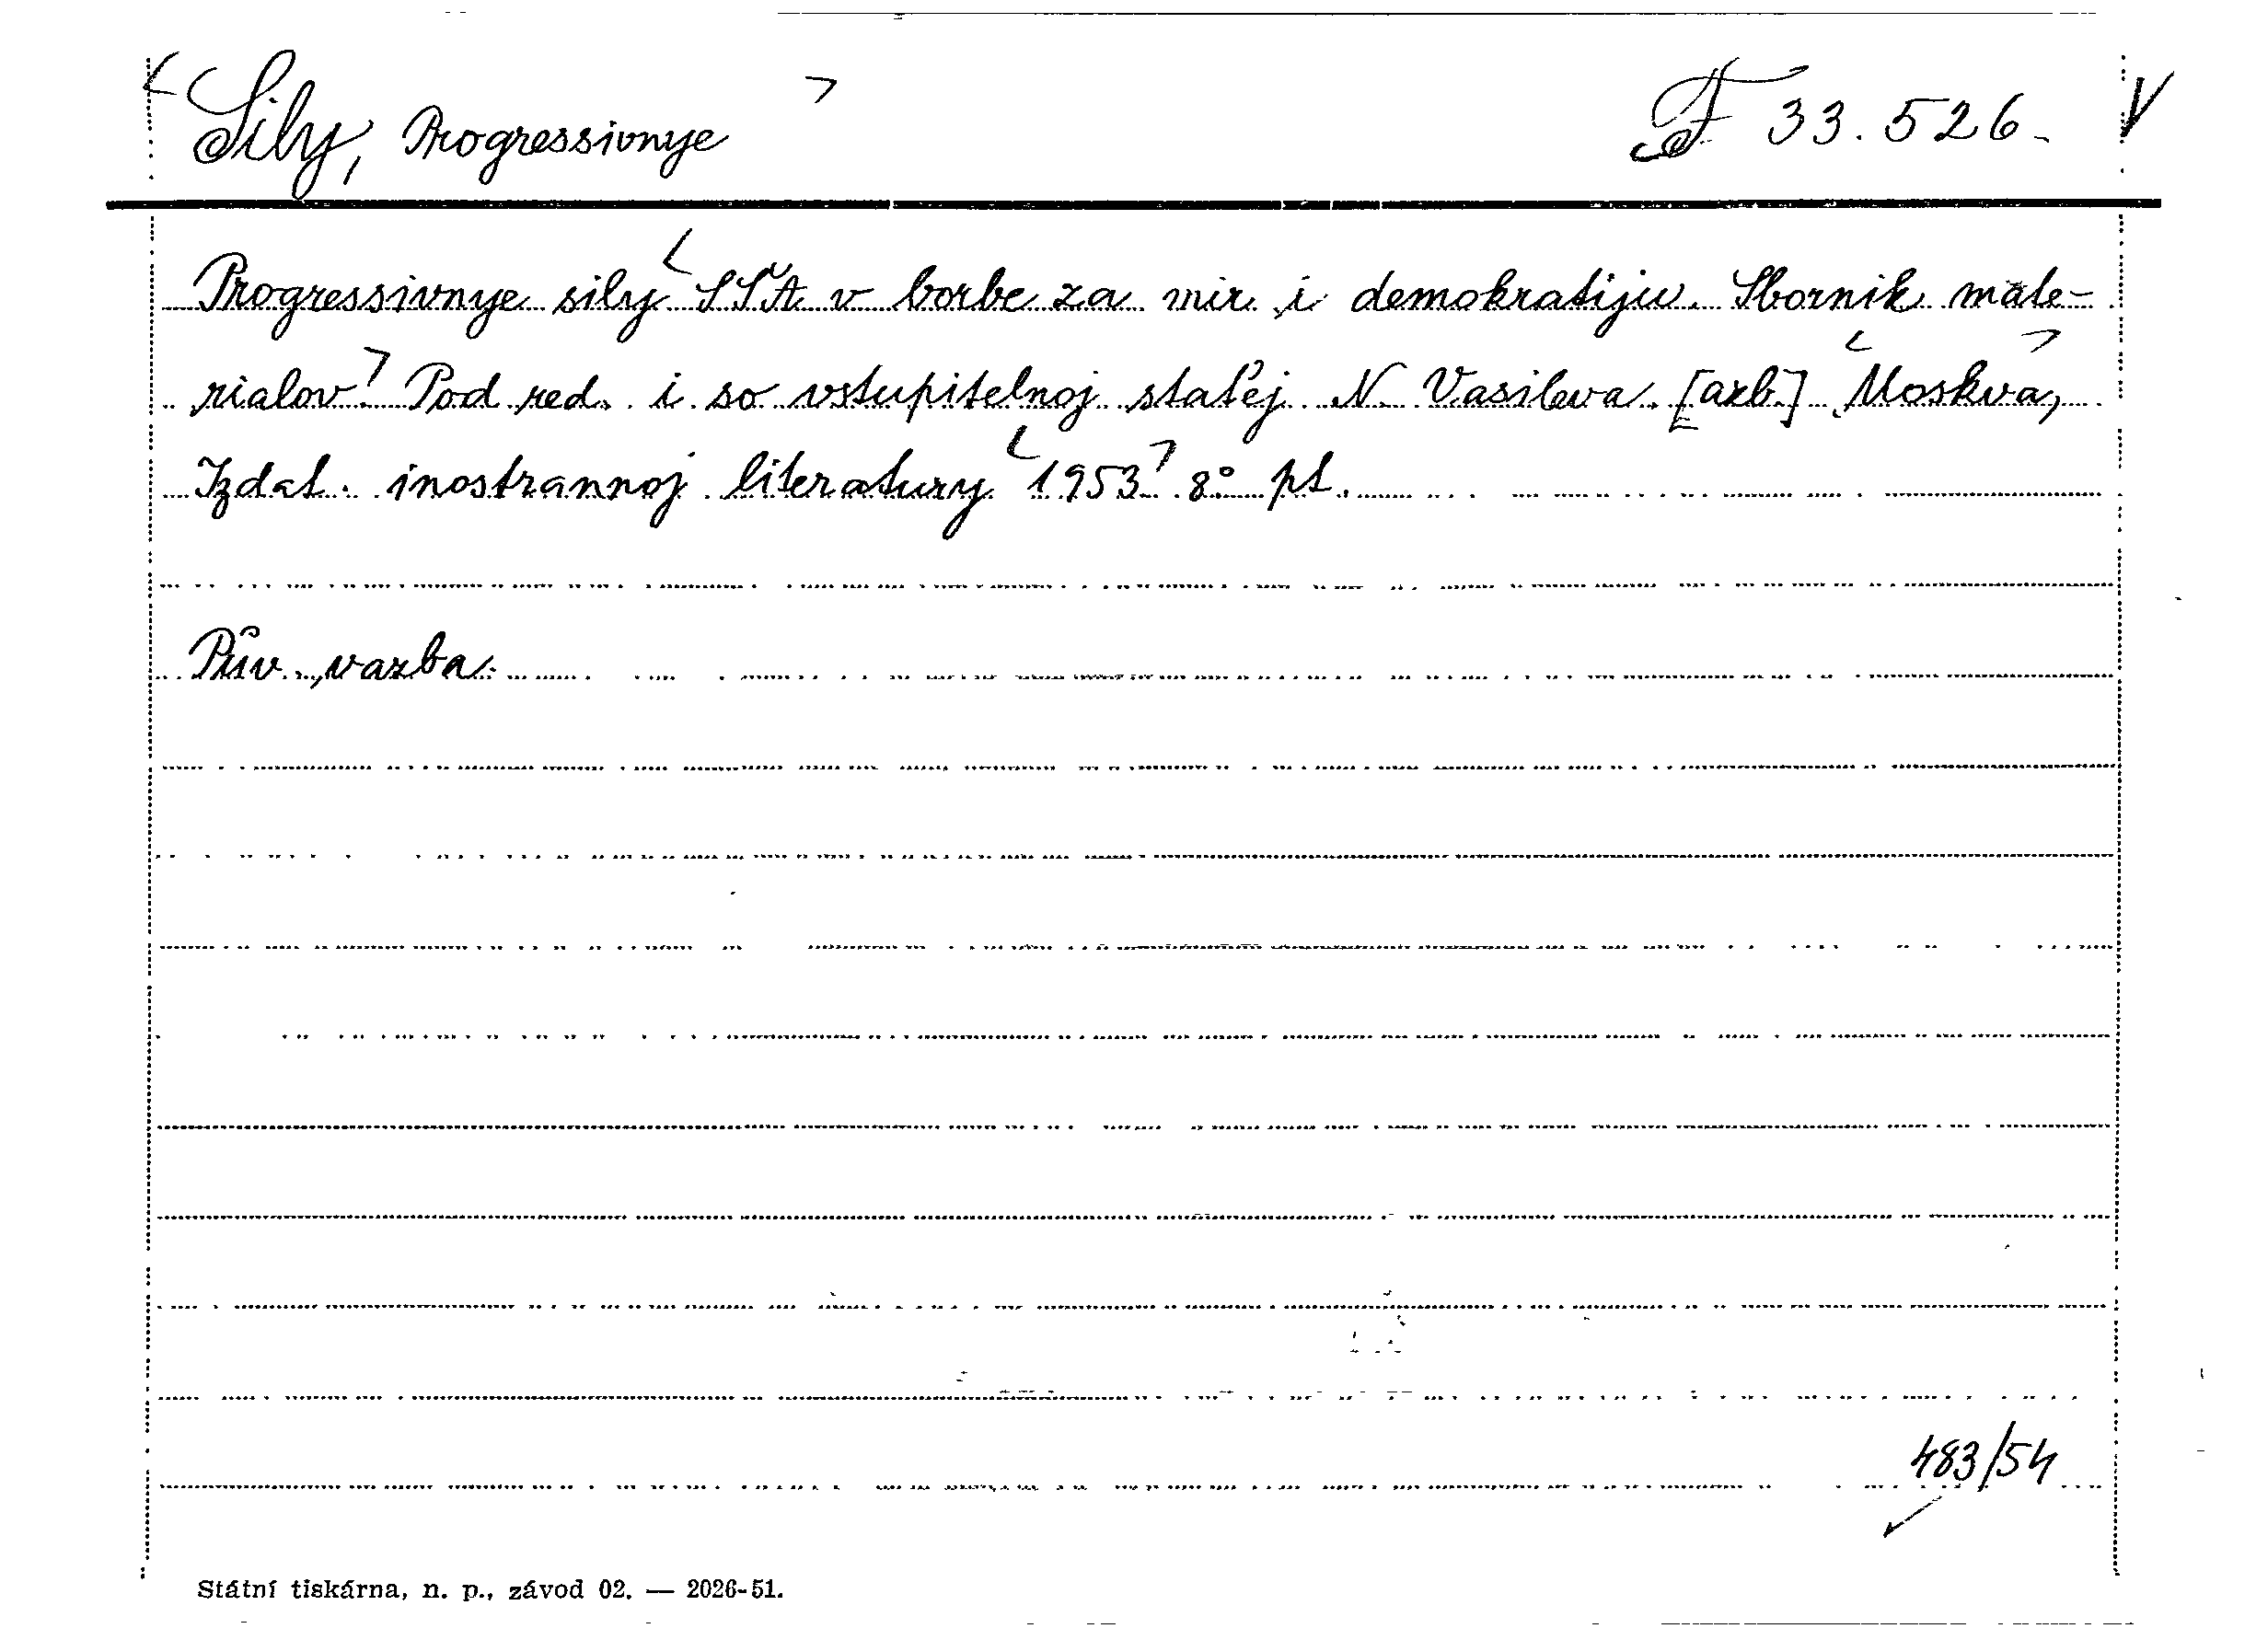 Sily, Progressivnye F 33.526.
Progressivnye sily SŠA v borbe za mir i demokratiju. Sbornik mate-
rialov. Pod red. i so vstupitelnoj stat'ej N. Vasileva. [azb.] Moskva,
Izdat. inostrannoj literatury 1953 8° pt.
Pův. vazba.
483/54
Státní tiskárna, n. p., závod 02. — 2026-51.